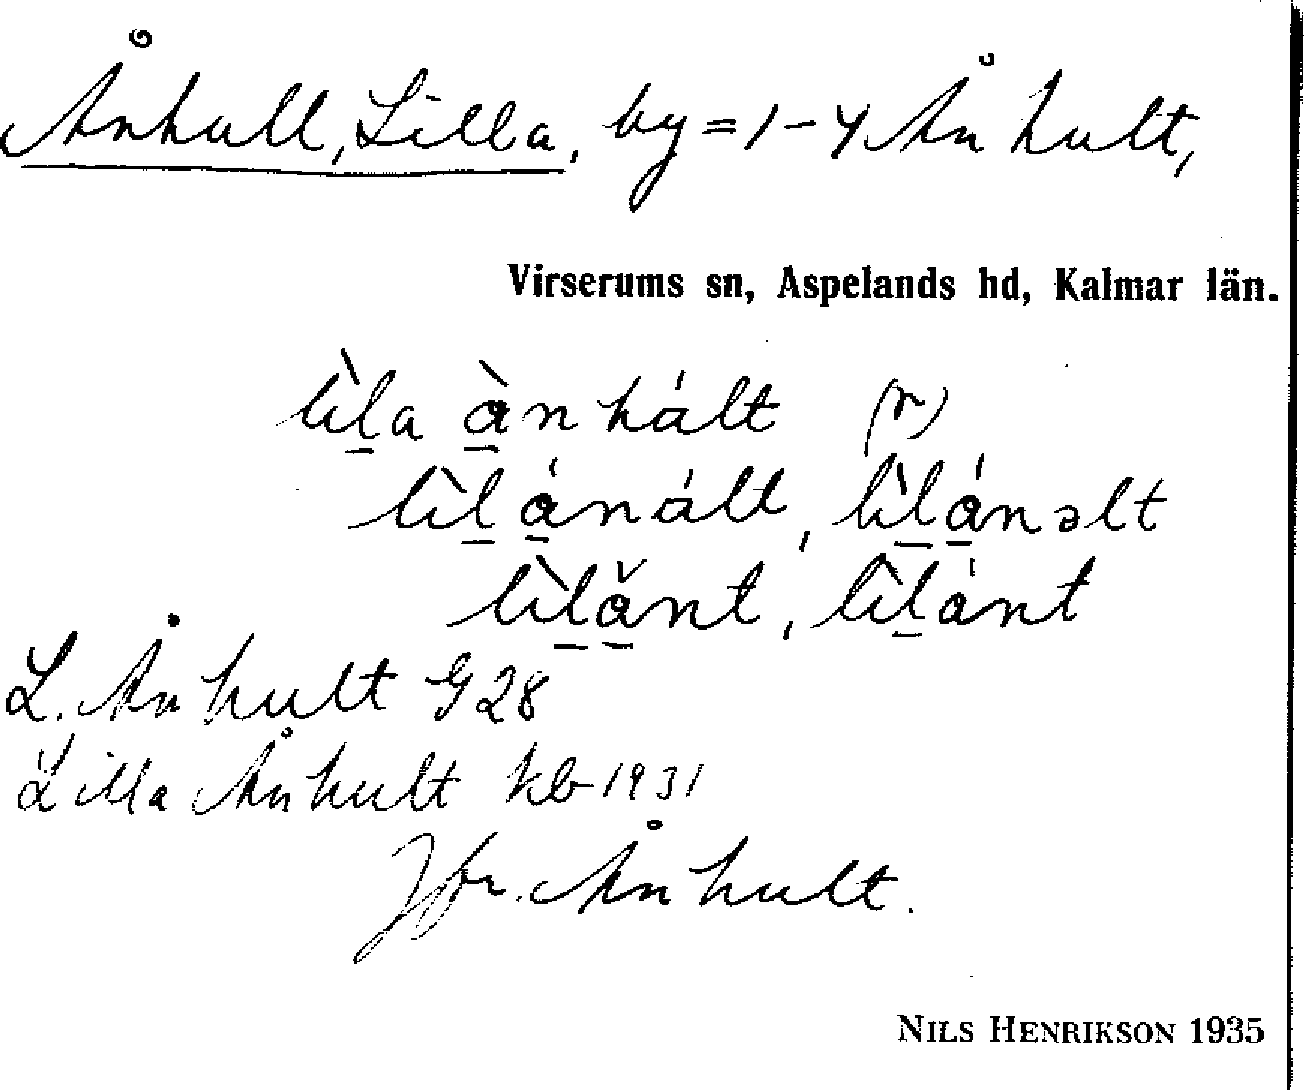 Ånhult, Lilla, by = 1-4 Ånhult,
Virserums sn, Aspelands hd, Kalmar län.
lìl̠a à̠nhált (r)
lìl̠á̠nált, lìl̠á̠nəlt
lìl̠ǎ̠nt, lìl̠ánt
L. Ånhult G 28
Lilla Ånhult kb 1931
Jfr. Ånhult.
NILS HENRIKSON 1935